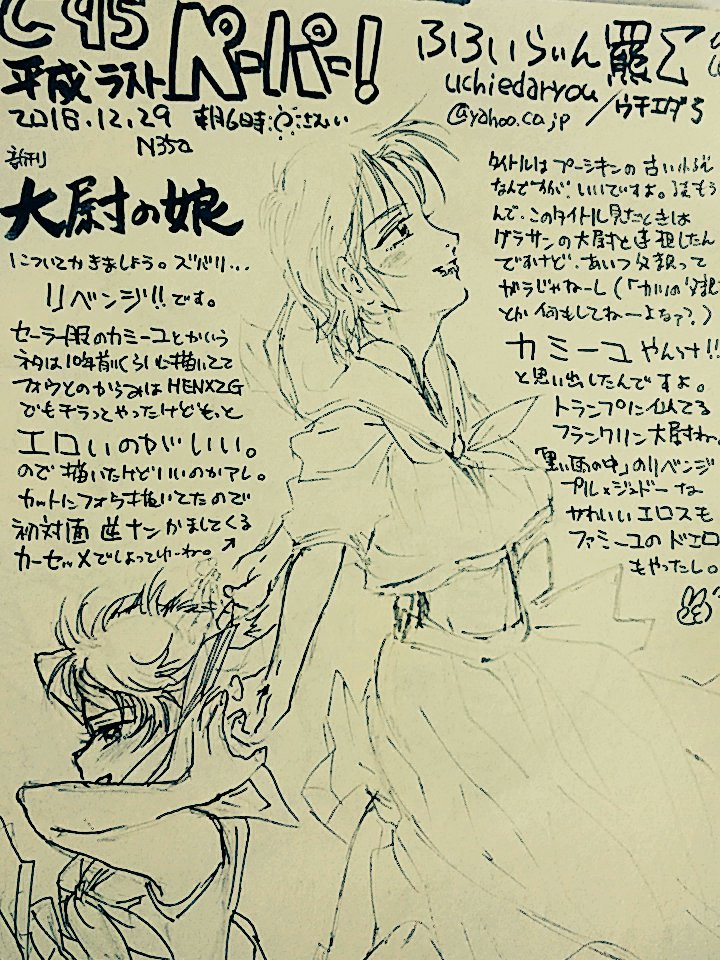 C95
平成ラストペーパー!
2018.12.29 朝6時
新刊
大尉の娘
についてかきましょう。ズバリ…
リベンジ!!です。
セーラー服のカミーユとかいう
ネタは10年前くらいに描いてて
フォウとのからみはHENXZG
でもチラっとやったけどもっと
エロいのがいい。
ので描いたけどいいのかアレ。
カットにフォウ描いてたので
初対面逆ナンかましてくる
カーセッXでしょってゆーね。
ふろいらいん
uchiedaryou
@yahoo.co.jp
/ウチエダ
タイトルはプーシキンの古い
なんですが、いいですよ。
んで、このタイトル見たときは
グラサンの大尉を連想したん
ですけど、あいつ父親って
ガラじゃねーし(
とか何もしてねーよなァ?)
カミーユやんけ!!
と思い出したんですよ。
トランプに似てる
フランクリン大尉ね。
「黒い雨の中」のリベンジ
プル×ジュドーな
かわいいエロスも
ファミーユのドエロ
もやったし。